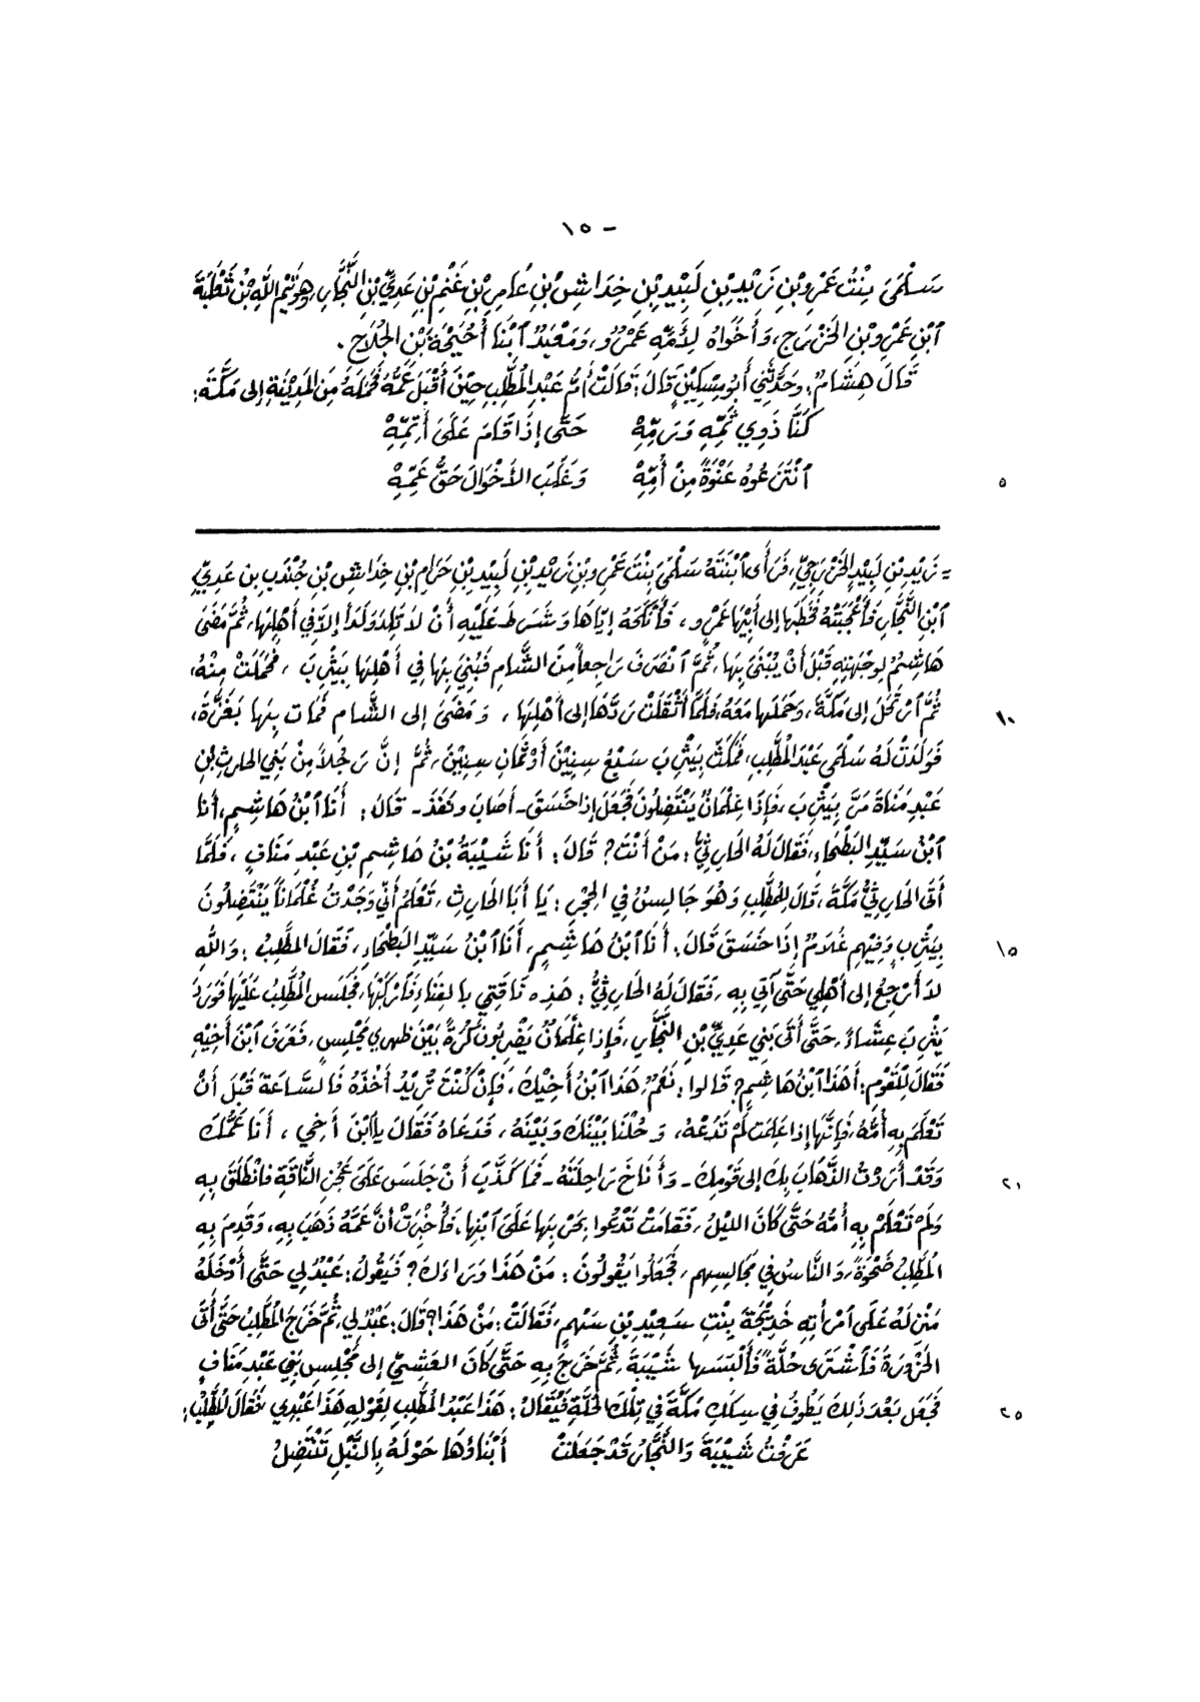 - ١٥
سَلْمَى بِنْتُ عَمْرِو بْنِ زَيْدِ بْنِ لَبِيْدِ بْنِ خِدَاشِ بْنِ عَامِرِ بْنِ غَنْمِ بْنِ عَدِيِّ بْنِ النَّجَّارِ، وهُوَ تَيْمُ اللَّهِ بْنُ ثَعْلَبَةَ
ٱبْنِ عَمْرِو بْنِ الخَزْرَجِ، وَأَخَوَاهُ لِأُمِّهِ عَمْرٌو، وَمَعْبَدٌ ٱبْنَا أُحَيْحَةَ بْنِ الجُلَاحِ.
قَالَ هِشَامٌ: وَحَدَّثَنِي أَبُو مِسْكِيْنٍ قَالَ: قَالَتْ أُمُّ عَبْدِ المُطَّلِبِ حِيْنَ أَقْبَلَ عَمُّهُ فَحَمَلَهُ مِنَ المَدِيْنَةِ إلى مَكَّةَ:
كُنَّا ذَوِي ثَمِّهِ وَرَمِّهْ حَتَّى إِذَا قَامَ عَلَى أَتِمِّهْ
ٱنْتَزَعُوهُ عَنْوَةً مِنْ أُمِّهْ وَغَلَبَ الأَخْوَالَ حَقُّ عَمِّهِْ
٥
= زَيْدِ بْنِ لَبِيْدٍ الخَزْرَجِيِّ، فَرَأَى ٱبْنَتَهُ سَلْمَى بِنْتَ عَمْرِو بْنِ زَيْدِ بْنِ لَبِيْدِ بْنِ حَرَامِ بْنِ خِدَاشِ بْنِ جُنْدَبِ بن عَدِيِّ
ٱبْنِ النَّجَّارِ فَأَعْجَبَتْهُ فَخَطَبَها إلى أَبِيْهَا عَمْرٍو، فَأَنْكَحَهُ إيَّاهَا وَشَرَطَ عَلَيْهِ أَنْ لاَ تَلِدَ وَلَدَاً إلاَّ في أَهْلِهَا، ثُمَّ مَضَى
هَاشِمٌ لِوِجْهَتِهِ قَبْلَ أَنْ يُبْنَى بِهَا، ثُمَّ ٱنْصَرَفَ رَاجِعاً مِنَ الشَّامِ فَبُنِيَ بِهَا فِي أَهْلِهَا بِيَثْرِبَ، فَحَمَلَتْ مِنْهُ،
ثُمَّ ٱرْتَحَلَ إلى مَكَّةَ، وَحَمَلَها مَعَهُ، فَلَمَّا أَثْقَلَتْ رَدَّهَا إلى أَهْلِهَا، وَمَضَى إلى الشَّامِ فَمَات بِهَا بَغَزَّةَ،
١٠
فَوَلَدَتْ لَهُ سَلْمَى عَبْدَ المُطَّلِبِ، فَمَكَثَ بِيَثْرِبَ سَبْعَ سِنِيْنَ أَوْ ثَمَانِ سِنِيْنَ، ثُمَّ إنَّ رَجُلاً مِنْ بَنِي الحَارِثِ بْنِ
عَبْدِ مَنَاةَ مَرَّ بِيَثْرِبَ، فَإِذَا غِلْمَانٌ يَنْتَضِلُونَ فَجَعَلَ إذا خَسَقَ - أَصَابَ ونَفَذَ - قَالَ: أَنَا ٱبْنُ هَاشِمٍ، أَنا
ٱبْنُ سَيِّدِ البَطْحَاءِ، فَقَالَ لَهُ الحَارِثِيُّ: مَنْ أَنْتَ؟ قَالَ: أَنَا شَيْبَةُ بْنُ هَاشِمِ بْنِ عَبْدِ مَنَافٍ، فَلَمَّا
أَتَى الحَارِثِيُّ مَكَّةَ، قَالَ لِلمُطَّلِبِ وَهُوَ جَالِسٌ فِي الحِجْرِ: يَا أَبَا الحَارِثِ، تَعْلَمُ أَنِّي وَجَدْتُ غُلْمَانَاً يَنْتَضِلُونَ
بِيَثْرِب، وَفِيْهِم غُلاَمٌ إِذَا خَسَقَ قَالَ: أَنَا ٱبْنُ هَاشِمٍ، أَنَا ٱبْنُ سَيِّدِ البَطْحَاءِ، فَقَالَ المُطَّلِبُ: وَاللهِ
١٥
لاَ أَرْجِعُ إلى أَهْلِي حَتَّى آتي بِهِ، فَقَالَ لَهُ الحَارِثِيُّ: هَذِه نَاقَتِي بالفِنَاءِ فَٱرْكَبْهَا، فَجَلَسَ المُطَّلِبُ عَلَيْها فَوَرَدَ
يَثْرِبَ عِشَاءً، حَتَّى أَتَى بَنِي عَدِيِّ بْنِ النَّجَّارِ، فَإِذا غِلْمَانٌ يَضْرِبُونَ كُرَةً بَيْنَ ظهري مَجْلِسٍ، فَعَرَفَ ٱبْنَ أَخِيْهِ
فَقَالَ لِلْقَوْمِ: أَهَذَا ٱبْنُ هَاشِمٍ؟ قَالوا: نَعَمْ، هَذَا ٱبْنُ أَخِيْكَ، فَإنْ كُنْتَ تُرِيْدُ أَخْذَهُ فَالسَّاعَةَ قَبْلَ أَنْ
تَعْلَمَ بِهِ أُمُّهُ، فَإِنَّهَا إذا عَلِمَتْ لَمْ تَدَعْهُ، وَحُلْنَا بَيْنَكَ وَبَيْنَهُ، فَدَعَاهُ فَقَالَ يا ٱبْنَ أَخِي، أَنَا عَمُّكَ
وَقَدْ أَرَدْتُ الذَّهَابَ بِكَ إلى قَوْمِكَ - وَأَنَاخَ رَاحِلَتَهُ - فَمَا كَذَّبَ أَنْ جَلَسَ عَلَى عَجُزِ النَّاقَةِ فَانْطَلَقَ بِهِ
٢١
وَلَمْ تَعْلَمْ بِهِ أُمُّهُ حَتَّى كَانَ اللَّيْلُ، فَقَامَتْ تَدْعُوا بِحَرَبِهَا عَلَى ٱبْنِهَا، فَأُخْبِرَتْ أَنَّ عَمَّهُ ذَهَبَ بِهِ، وَقَدِمَ بِهِ
المُطَّلِبُ ضَحْوَةً، وَالنَّاسُ فِي مَجَالِسِهِم، فَجَعَلُوا يَقُولُونَ: مَنْ هَذَا وَرَاءَكَ؟ فَيَقُولُ: عَبْدٌ لِي حَتَّى أَدْخَلَهُ
مَنْزِلَهُ عَلَى ٱمْرَأَتِهِ خَدِيْجَةَ بِنْتِ سَعِيْدِ بْنِ سَهْمٍ، فَقَالَتْ: مَنْ هَذَا؟ قَالَ: عَبْدٌ لِي، ثُمَّ خَرَجَ المُطَّلِبُ حَتَّى أَتَى
الحَزْوَرَةَ فَٱشْتَرَى حُلَّةً فَأَلْبَسَها شَيْبَةَ، ثُمَّ خَرَجَ بِهِ حَتَّى كَانَ العَشِيّ إلى مَجْلِسِ بَنِي عَبْدِ مَنَافٍ
فَجَعَلَ بَعْدَ ذَلِكَ يَطُوفُ فِي سِكَكِ مَكَّةَ فِي تِلْكَ الحُلَّةِ فَيُقَالُ: هَذَا عَبْدُ المُطَّلِبِ لِقَوْلِهِ هَذَا عَبْدِي، فَقَالَ المُطَّلِبُ:
٢٥
عَرَفْتُ شَيْبَةَ وَالنَّجَّارُ قَدْ جَعَلَتْ أَبْنَاؤُهَا حَوْلَهُ بِالنَّبْلِ تَنْتَضِلُ